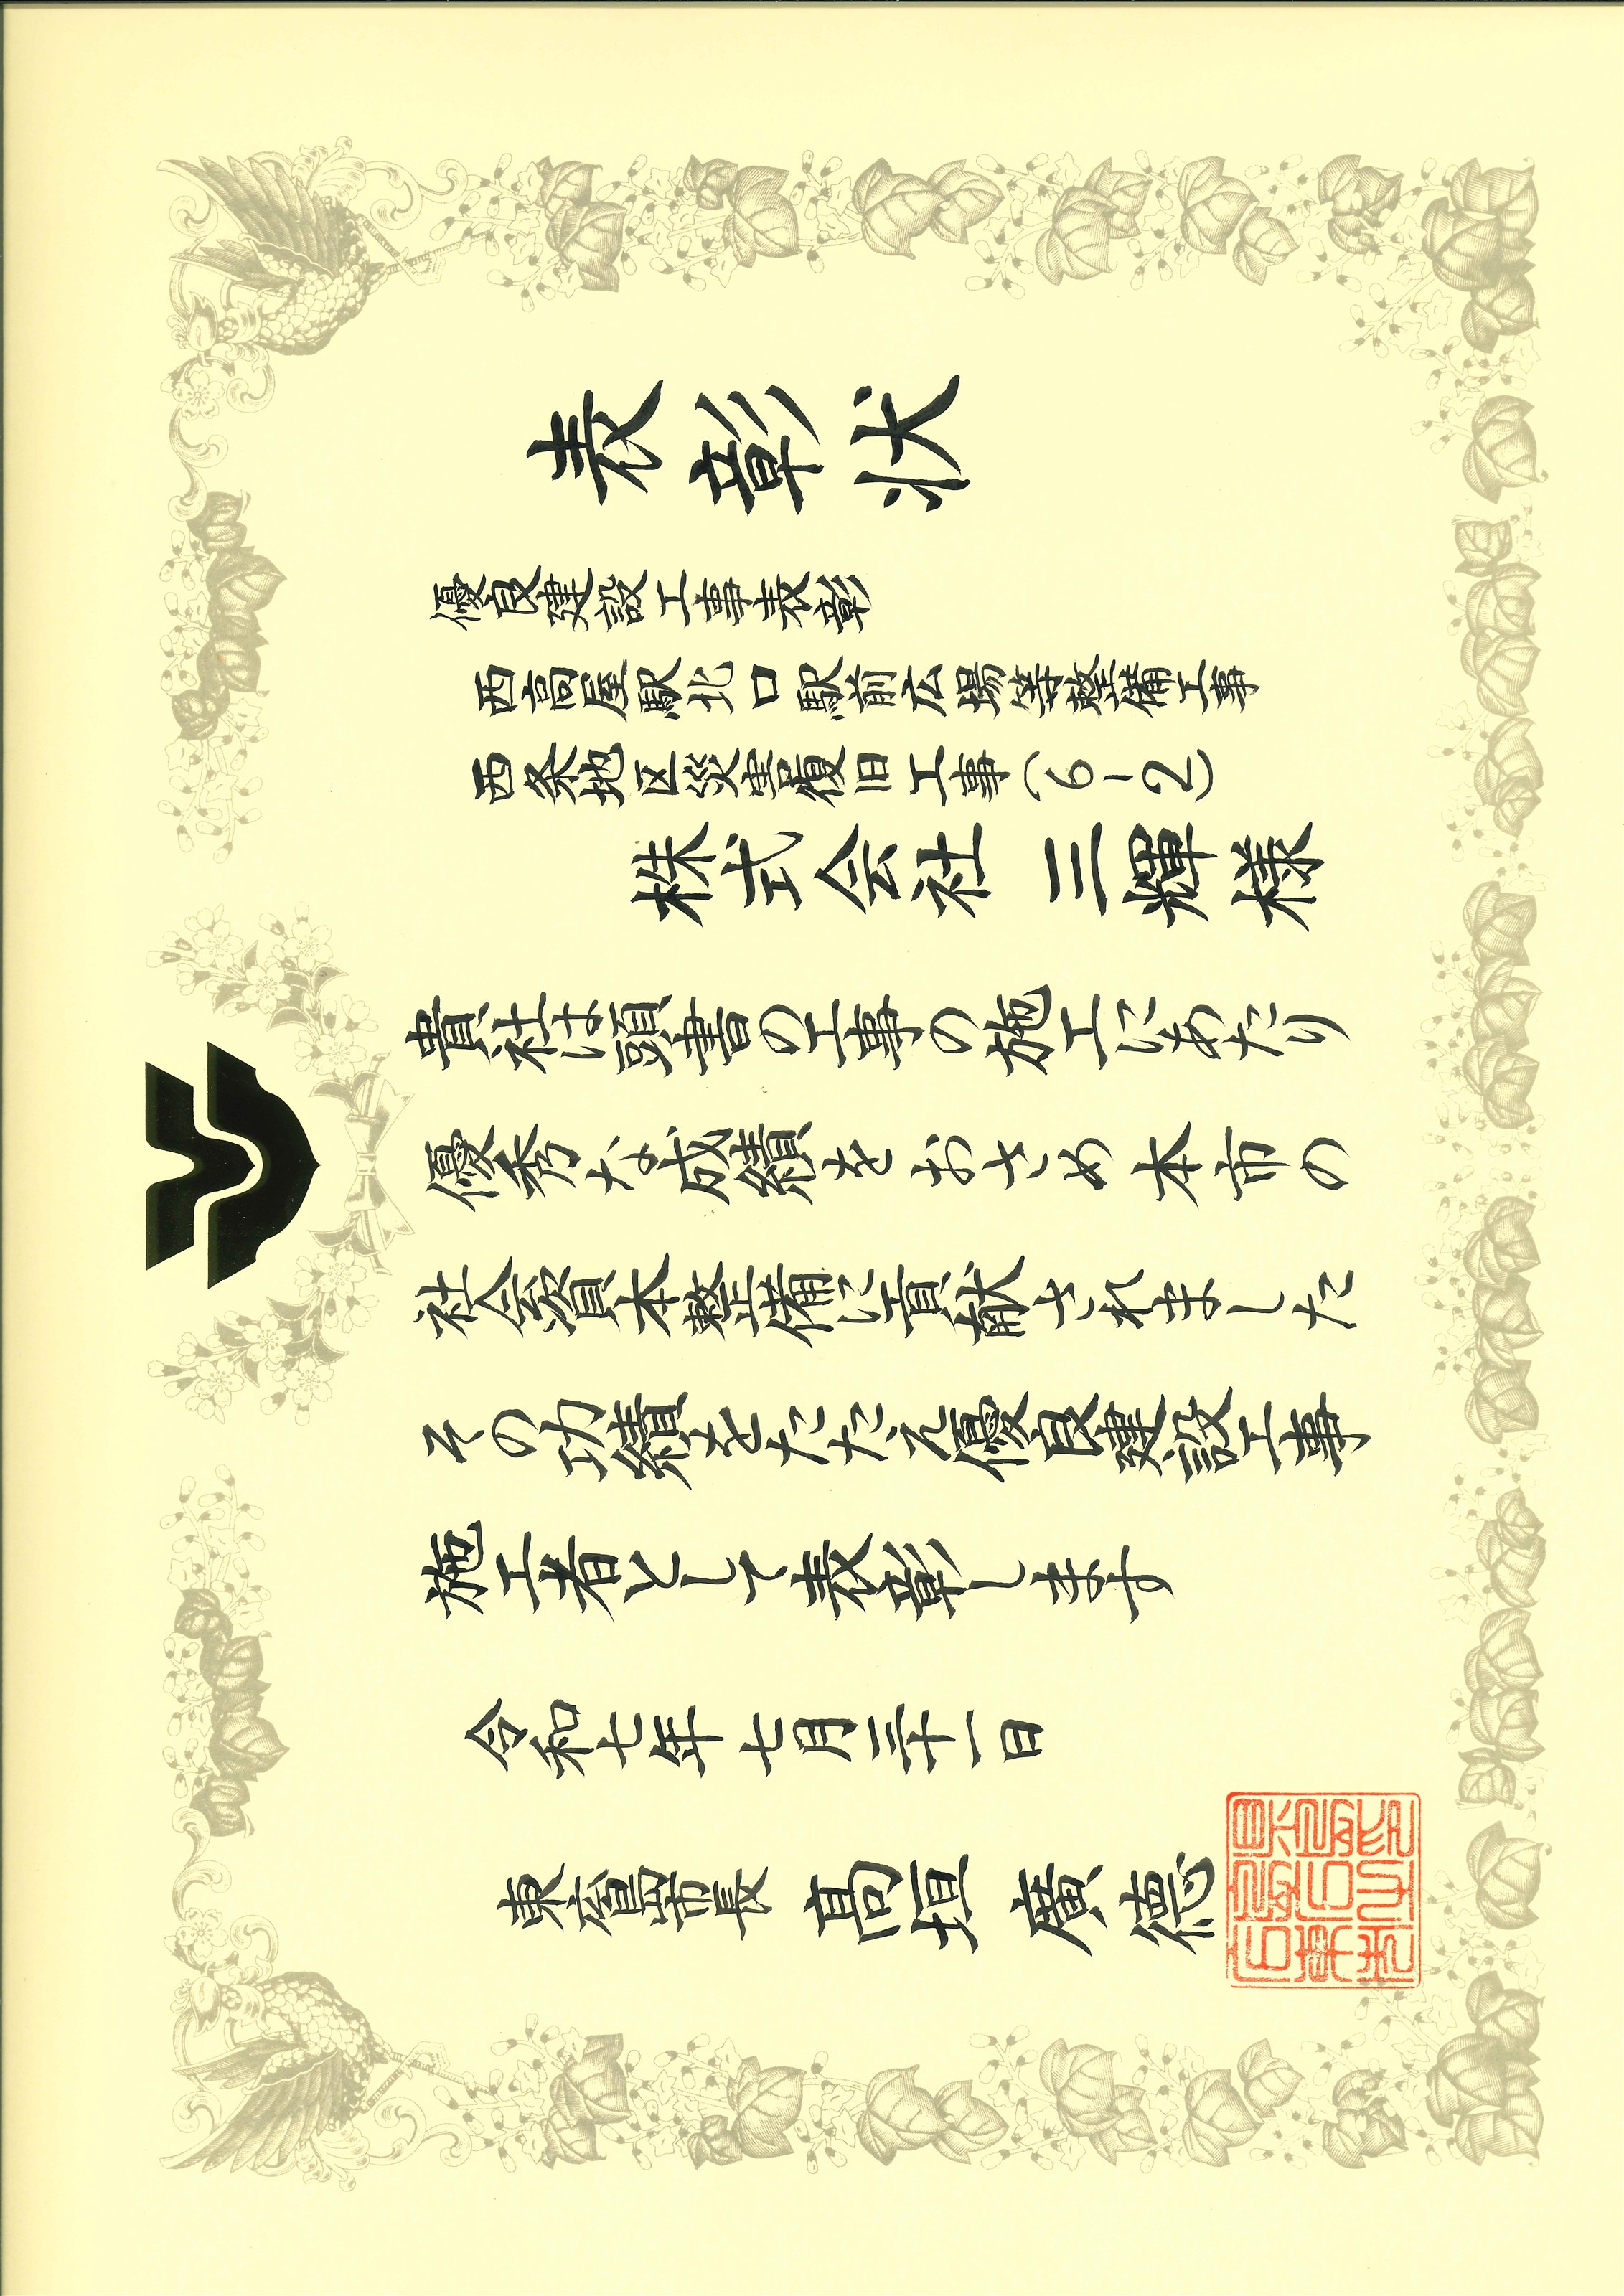 表彰状
優良建設工事表彰
西高屋駅北口駅前広場等整備工事
西条地区災害復旧工事(6-2)
株式会社 三輝 様
貴社は頭書の工事の施工にあたり
優秀な成績をおさめ本市の
社会資本整備に貢献されました
その功績をたたえ優良建設工事
施工者として表彰します
令和七年七月三十一日
東広島市長 髙垣 廣徳